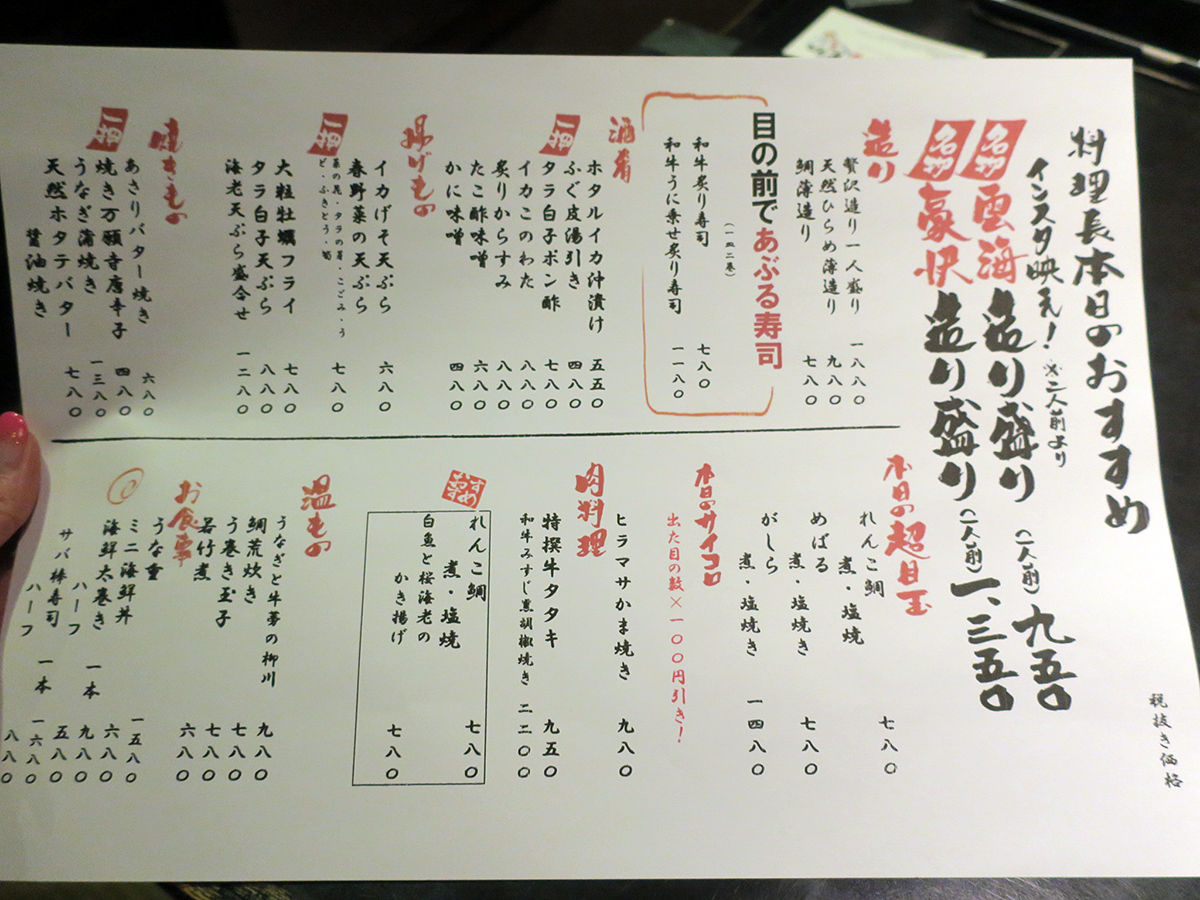 料理長本日のおすすめ
インスタ映え！※二人前より
名物 雲海 造り盛り (一人前) 九五〇
名物 豪快 造り盛り (一人前) 一、三五〇
税抜き価格
造り
贅沢造り一人盛り 一八八〇
天然ひらめ薄造り 九八〇
鯛薄造り 七八〇
目の前であぶる寿司
和牛炙り寿司 七八〇
和牛うに乗せ炙り寿司 一一八〇
酒肴
ホタルイカ沖漬け 五五〇
ふぐ皮湯引き 四八〇
一押
タラ白子ポン酢 七八〇
イカこのわた 八八〇
炙りからすみ 八八〇
たこ酢味噌 六八〇
かに味噌 四八〇
揚げもの
イカげそ天ぷら 六八〇
一押
春野菜の天ぷら 七八〇
菜の花・タラの芽・こごみ・う
ど・ふきとう・筍
大粒牡蠣フライ 七八〇
タラ白子天ぷら 八八〇
海老天ぷら盛合せ 一二八〇
焼きもの
あさりバター焼き 六八〇
一押
焼き万願寺唐辛子 四八〇
うなぎ蒲焼き 一三八〇
天然ホタテバター
醤油焼き 七八〇
本日の超目玉
れんこ鯛
煮・塩焼 七八〇
めばる
煮・塩焼き 七八〇
がしら
煮・塩焼き 一四八〇
本日のサイコロ
出た目の数×一〇〇円引き！
ヒラマサかま焼き 九八〇
肉料理
特撰牛タタキ 九五〇
和牛みすじ黒胡椒焼き 二二〇〇
おすすめ
れんこ鯛
煮・塩焼 七八〇
白魚と桜海老の
かき揚げ 七八〇
温もの
うなぎと牛蒡の柳川 九八〇
う巻き玉子 七八〇
若竹煮 七八〇
お食事 六八〇
うな重 一五八〇
ミニ海鮮丼 六八〇
海鮮太巻き 一本 九八〇
ハーフ 五八〇
サバ棒寿司 一本 一六八〇
ハーフ 八八〇